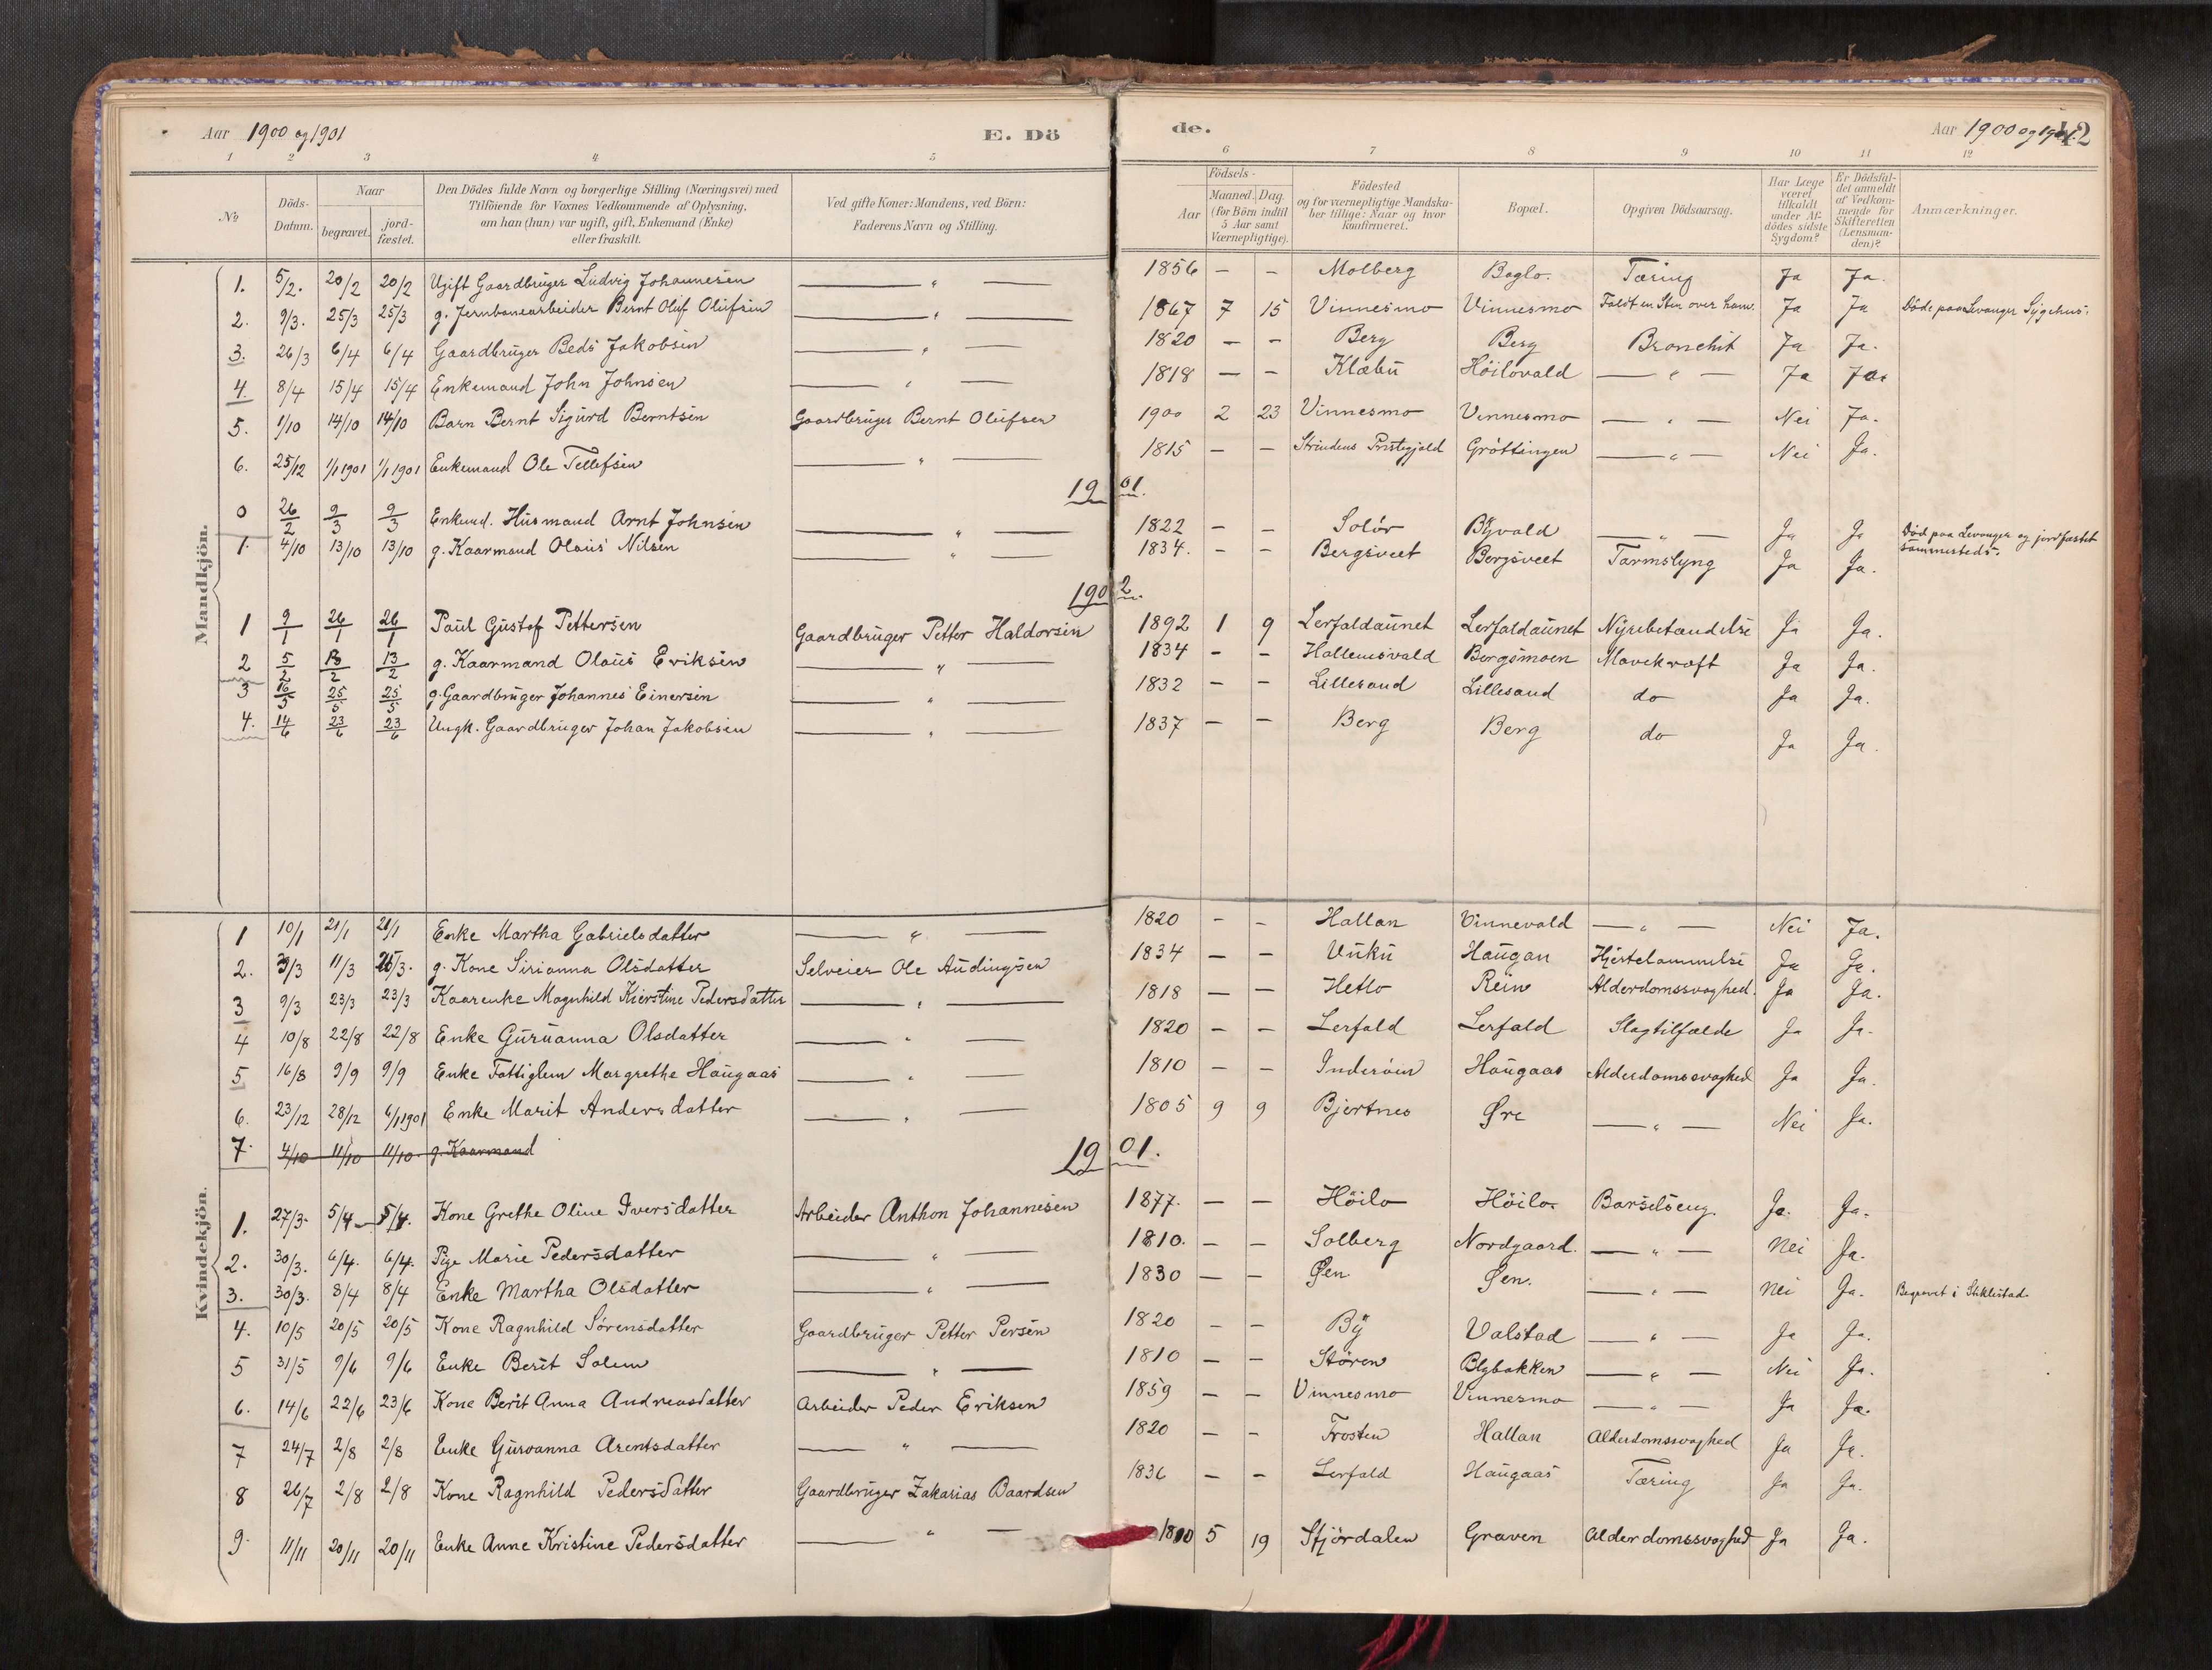 Aar 1900 og 1901
E. Dö
de.
Aar 1900 og 1901.
42
1 2 3 4 5 6 7 8 9 10 11 12
No
Döds-Datum.
Naar
begravet.
jord-fæstet.
Den Dödes fulde Navn og borgerlige Stilling (Næringsvei) med
Tilföiende for Voxnes Vedkommende af Oplysning,
om han (hun) var ugift, gift, Enkemand (Enke)
eller fraskilt.
Ved gifte Koner: Mandens, ved Börn:
Faderens Navn og Stilling.
Födsels-
Aar
Maaned. Dag.
(for Börn indtil
5 Aar samt
Værnepligtige).
Födested
og for værnepligtige Mandska-
ber tillige: Naar og hvor
konfirmeret.
Bopæl.
Opgiven Dödsaarsag.
Har Læge
været
tilkaldt
under Af-
dödes sidste
Sygdom?
Er Dödsfal-
det anmeldt
af Vedkom-
mende for
Skifteretten
(Lensman-
den)?
Anmærkninger.
Mandkjön.
1. 5/2. 20/2 20/2 Ugift Gaardbruger Ludvig Johannesen — " — 1856 — — Molberg Baglo. Tæring Ja Ja.
2. 9/3. 25/3 25/3 g. Jernbanearbeider Bernt Oluf Olufsen — " — 1867 7 15 Vinnesmo Vinnesmo Faldt en Sten over ham. Ja Ja Döde paa Levanger Sygehus.
3. 26/3 6/4 6/4 Gaardbruger Beds Jakobsen — " — 1820 — — Berg Berg Bronchit Ja Ja.
4. 8/4 15/4 15/4 Enkemand John Johnsen — " — 1818 — — Klæbu Höilovald — " — Ja Ja.
5. 1/10 14/10 14/10 Barn Bernt Sigurd Berntsen Gaardbruger Bernt Olufsen 1900 2 23 Vinnesmo Vinnesmo — " — Nei Ja.
6. 25/12 1/1 1901 1/1 1901 Enkemand Ole Tellefsen — " — 1815 — — Strindens Prestegjeld Gröttingen — " — Nei Ja.
1901.
0 26/2 9/3 9/3 Enkemd. Husmand Arnt Johnsen — " — 1822 — — Solör Byvald — " — Ja Ja Död paa Levanger og jordfæstet
sammesteds.
1. 4/10 13/10 13/10 g. Kaarmand Olaus Nilsen — " — 1834. — — Bergsveet Bergsveet Tarmslyng Ja Ja.
1902.
1 9/1 26/1 26/1 Paul Gustof Pettersen Gaardbruger Petter Haldorsen 1892 1 9 Lerfaldaunet Lerfaldaunet Nyrebetændelse Ja Ja.
2 5/2 13/2 13/2 g. Kaarmand Olaus Eriksen — " — 1834 — — Hallemsvald Bergsmoen Mavekræft Ja Ja.
3 16/5 25/5 25/5 g. Gaardbruger Johannes Einersen — " — 1832 — — Lillesand Lillesand do Ja Ja.
4. 14/6 23/6 23/6 Ungk. Gaardbruger Johan Jakobsen — " — 1837 — — Berg Berg do Ja Ja.
Kvindekjön.
1 10/1 21/1 21/1 Enke Martha Gabrielsdatter — " — 1820 — — Hallan Vinnevald — " — Nei Ja.
2. 3/3 11/3 25/3. g. Kone Sirianna Olsdatter Selveier Ole Audingsen 1834 — — Vuku Haugan Hjertelammelse Ja Ja.
3 9/3 23/3 23/3 Kaarenke Magnhild Kierstine Pedersdatter — " — 1818 — — Hetlo Rein Alderdomssvaghed. Ja Ja.
4 10/8 22/8 22/8 Enke Guruanna Olsdatter — " — 1820 — — Lerfald Lerfald Slagtilfælde Ja Ja.
5 16/8 9/9 9/9 Enke Fattiglem Margrethe Haugaas — " — 1810 — — Inderöen Haugaas Alderdomssvaghed Ja Ja.
6. 23/12 28/12 6/1 1901 Enke Marit Andersdatter — " — 1805 9 9 Bjertnes Øre — " — Nei Ja.
7. 4/10 11/10 11/10. g. Kaarmand
1901.
1. 27/3. 5/4 5/4. Kone Grethe Oline Iversdatter Arbeider Anthon Johannesen 1877. — — Höilo Höilo. Barselseng. Ja. Ja.
2. 30/3. 6/4. 6/4. Pige Marie Pedersdatter — " — 1810. — — Salberg Nordgaard. — " — Nei Ja.
3. 30/3. 8/4 8/4 Enke Martha Olsdatter — " — 1830 — — Øen Øen. — " — Nei Ja. Begravet i Stiklestad.
4. 10/5 20/5 20/5 Kone Ragnhild Sörensdatter Gaardbruger Petter Persen 1820 — — By Valstad — " — Ja Ja.
5 31/5 9/6 9/6 Enke Berit Solem — " — 1810 — — Stören Blybakken — " — Nei Ja.
6. 14/6 22/6 23/6 Kone Berit Anna Andreasdatter Arbeider Peder Eriksen 1859 — — Vinnesmo Vinnesmo — " — Ja Ja.
7 24/7 2/8 2/8 Enke Guroanna Arentsdatter — " — 1820 — — Frosten Hallan Alderdomssvaghed Ja Ja.
8 26/7 2/8 2/8 Kone Ragnhild Pedersdatter Gaardbruger Zakarias Baardsen 1836 — — Lerfald Haugaas Tæring Ja Ja.
9. 11/11 20/11 20/11 Enke Anne Kristine Pedersdatter — " — 1810 5 19 Stjördalen Graven Alderdomssvaghed Ja Ja.